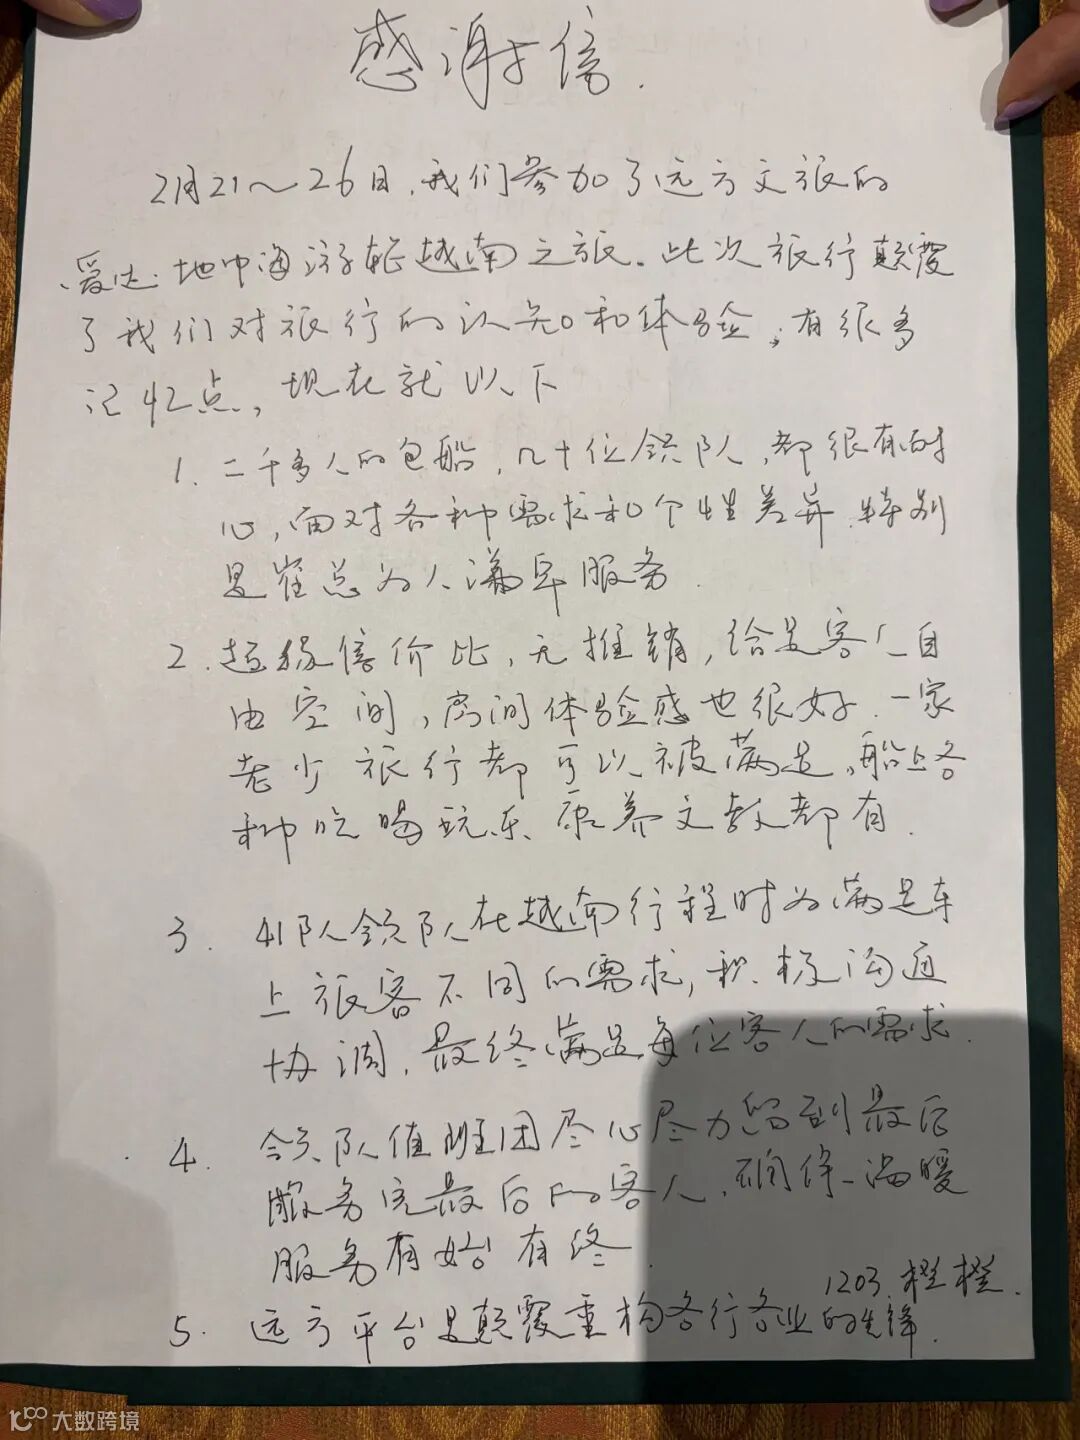 感谢信.
2月21~26日,我们参加了远方文旅的
爱达·地中海游轮越南之旅.此次旅行颠覆
了我们对旅行的认知和体验,有很多
记忆点,现在就以下
1.二千多人的包船,几十位领队,都很有耐
心,面对各种需求和个性差异.特别
是崔总为人谦卑服务.
2.超级倍价比,无推销,给足客人自
由空间,房间体验感也很好.一家
老少旅行都可以被满足,船上各
种吃喝玩乐、康养文教都有.
3.41队领队在越南行程时为满足车
上旅客不同的需求,积极沟通
协调,最终满足每位客人的需求.
4.领队值班团尽心尽力留到最后
服务完最后的客人,确保温暖
服务有始有终.
1203.橙橙.
5.远方平台是颠覆重构各行各业的先锋.
大数跨境